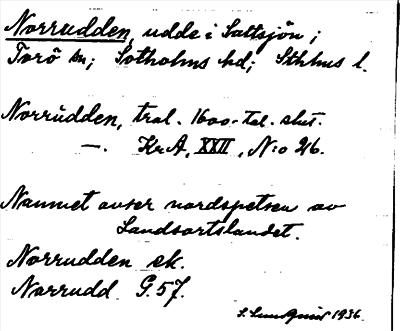 Norrudden, udde i Saltsjön;
Torö sn; Sotholms hd; Sthlms l.
Norrudden, trol. 1600-tal. slut.
—. KrA, XXII, N:o 26.
Namnet avser nordspetsen av
Landsortslandet.
Norrudden ek.
Norrudd G.57.
S. Lundquist 1936